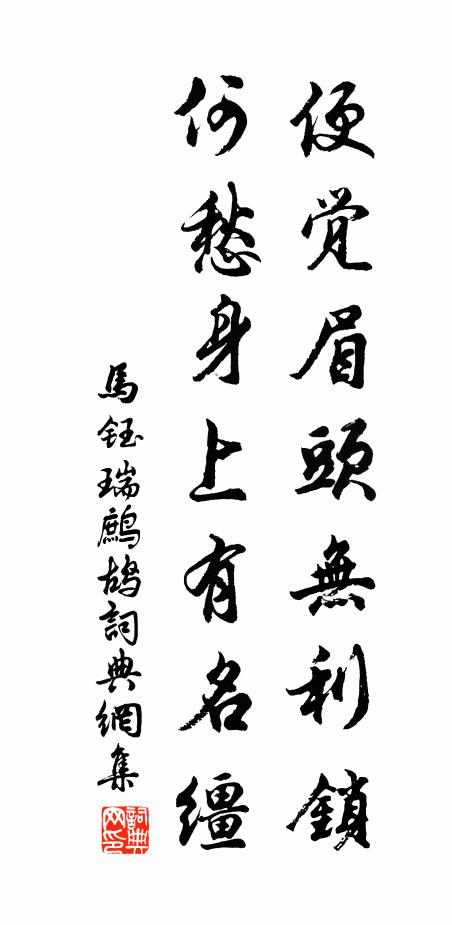 便覺眉頭無利鎖
何愁身上有名繮
馬鈺瑞鷓鴣詞典網集
詞典网印